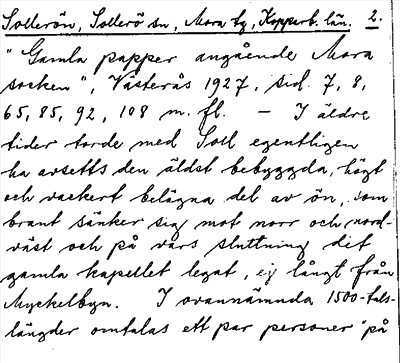 Sollerön, Sollerö sn, Mora tg, Kopparb. län. 2.
"Gamla papper angående Mora
socken", Västerås 1927, sid. 7, 8,
65, 85, 92, 108 m. fl. — I äldre
tider torde med Soll egentligen
ha avsetts den äldst bebyggda, högt
och vackert belägna del av ön, som
brant sänker sig mot norr och nord-
väst och på vars sluttning det
gamla kapellet legat, ej långt från
Myckelbyn. I ovannämnda 1500-tals-
längder omtalas ett par personer "på